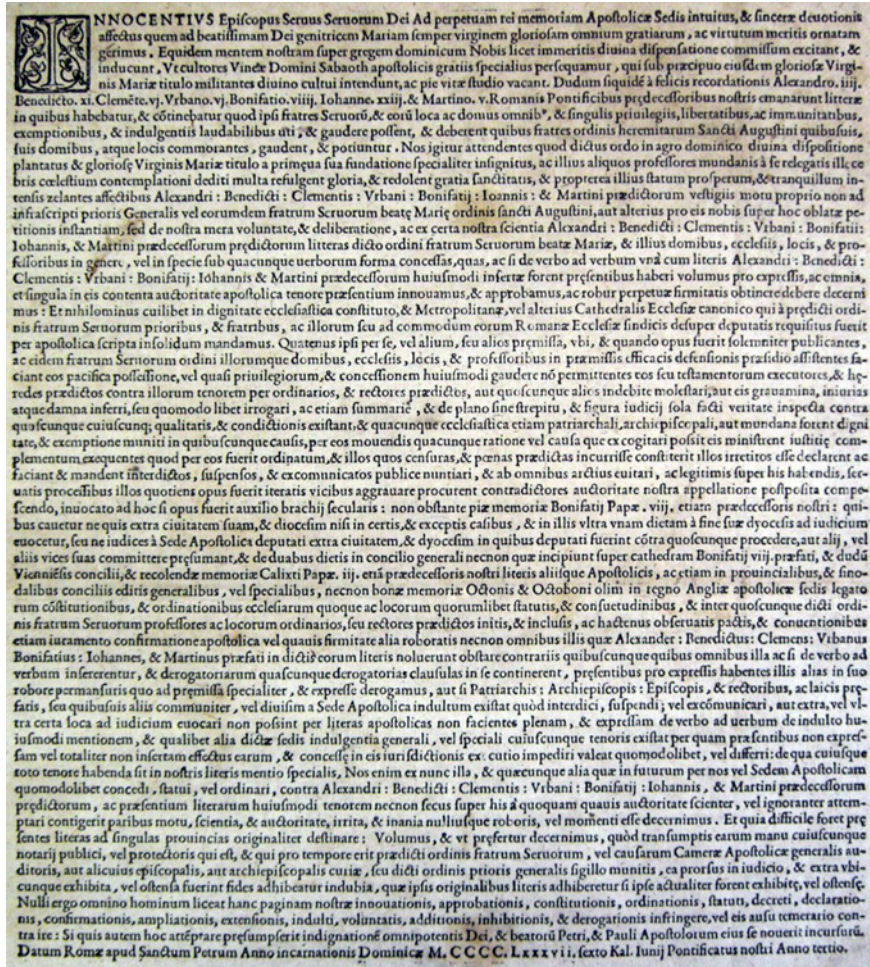 INNOCENTIVS Episcopus Seruus Seruorum Dei Ad perpetuam rei memoriam Apostolicæ Sedis intuitus, & sinceræ deuotionis
affectus quem ad beatissimam Dei genitricem Mariam semper virginem gloriosam omnium gratiarum, ac virtutum meritis ornatam
gerimus. Equidem mentem nostram super gregem dominicum Nobis licet immeritis diuina dispensatione commissum excitant, &
inducunt, Vt cultores Vineæ Domini Sabaoth apostolicis gratiis specialius persequamur, qui sub præcipuo eiusdem gloriosæ Virgi-
nis Mariæ titulo militantes diuino cultui intendunt, ac piæ vitæ studio vacant. Dudum siquidē à felicis recordationis Alexandro. iiij.
Benedicto. xi. Clemēte. vj. Vrbano. vj. Bonifatio. viiij. Iohanne. xxiij. & Martino. v. Romanis Pontificibus prędecessoribus nostris emanarunt litteræ
in quibus habebatur, & cōtinebatur quod ipsi fratres Seruorū, & eorū loca ac domus omnib9, & singulis priuilegiis, libertatibus, ac immunitatibus,
exemptionibus, & indulgentiis laudabilibus vti, & gaudere possent, & deberent quibus fratres ordinis heremitarum Sancti Augustini quibusuis,
suis domibus, atque locis commorantes, gaudent, & potiuntur. Nos igitur attendentes quod dictus ordo in agro dominico diuina dispositione
plantatus & gloriosę Virginis Mariæ titulo a primęua sua fundatione specialiter insignitus, ac illius aliquos professores mundanis à se relegatis illece
bris cœlestium contemplationi dediti multa refulgent gloria, & redolent gratia sanctitatis, & propterea illius statum prosperum, & tranquillum in-
tensis zelantes affectibus Alexandri : Benedicti : Clementis : Vrbani : Bonifatij : Ioannis : & Martini prædictorum vestigiis motu proprio non ad
infrascripti prioris Generalis vel eorumdem fratrum Seruorum beatę Marię ordinis sancti Augustini, aut alterius pro eis nobis super hoc oblatæ pe-
titionis instantiam, sed de nostra mera voluntate, & deliberatione, ac ex certa nostra scientia Alexandri : Benedicti : Clementis : Vrbani : Bonifatii:
Iohannis, & Martini prædecessorum prędictorum litteras dicto ordini fratrum Seruorum beatæ Mariæ, & illius domibus, ecclesiis, locis, & pro-
fessoribus in genere, vel in specie sub quacunque uerborum forma concessas, quas, ac si de verbo ad verbum vnà cum literis Alexandri : Benedicti :
Clementis : Vrbani : Bonifatij : Iohannis & Martini prædecessorum huiusmodi insertæ forent pręsentibus haberi volumus pro expressis, ac omnia,
et singula in eis contenta auctoritate apostolica tenore præsentium innouamus, & approbamus, ac robur perpetuæ firmitatis obtinere debere decerni
mus : Et nihilominus cuilibet in dignitate ecclesiastica constituto, & Metropolitanæ, vel alterius Cathedralis Ecclesiæ canonico qui à prędicti ordi-
nis fratrum Seruorum prioribus, & fratribus, ac illorum seu ad commodum eorum Romanæ Ecclesiæ sindicis desuper deputatis requisitus fuerit
per apostolica scripta insolidum mandamus. Quatenus ipsi per se, vel alium, seu alios pręmissa, vbi, & quando opus fuerit solemniter publicantes,
ac eidem fratrum Seruorum ordini illorumque domibus, ecclesiis, locis, & professoribus in præmissis efficacis defensionis præsidio assistentes fa-
ciant eos pacifica possessione, vel quasi priuilegiorum, & concessionem huiusmodi gaudere nō permittentes eos seu testamentorum executores, & hę-
redes prædictos contra illorum tenorem per ordinarios, & rectores prædictos, aut quoscunque alios indebite molestari, aut eis grauamina, iniurias
atque damna inferri, seu quomodo libet irrogari, ac etiam summariè, & de plano sine strepitu, & figura iudicij sola facti veritate inspecta contra
quoscunque cuiuscunq; qualitatis, & condictionis existant, & quacunque ecclesiastica etiam patriarchali, archiepiscopali, aut mundana forent digni
tate, & exemptione muniti in quibuscunque causis, per eos mouendis quacunque ratione vel causa que excogitari possit eis ministrent iustitię com-
plementum exequentes quod per eos fuerit ordinatum, & illos quos censuras, & pœnas prædictas incurrisse constiterit illos irretitos esse declarent ac
faciant & mandent interdictos, suspensos, & excomunicatos publice nuntiari, & ab omnibus arctius euitari, ac legitimis super his habendis, ser-
uatis processibus illos quotiens opus fuerit iteratis vicibus aggrauare procurent contradictores auctoritate nostra appellatione postposita compe-
scendo, inuocato ad hoc si opus fuerit auxilio brachij secularis : non obstante piæ memoriæ Bonifatij Papæ. viij. etiam prædecessoris nostri : qui-
bus cauetur ne quis extra ciuitatem suam, & diocesim nisi in certis, & exceptis casibus, & in illis vltra vnam dietam à fine suæ dyocesis ad iudicium
euocetur, seu ne iudices à Sede Apostolica deputati extra ciuitatem, & dyocesim in quibus deputati fuerint cōtra quoscunque procedere, aut alij, vel
aliis vices suas committere pręsumant, & de duabus dietis in concilio generali necnon quæ incipiunt super cathedram Bonifatij viij. præfati, & dudū
Viennēsis concilii, & recolendæ memoriæ Calixti Papæ. iij. etiā prædecessoris nostri literis aliisque Apostolicis, ac etiam in prouincialibus, & sino-
dalibus conciliis editis generalibus, vel specialibus, necnon bonæ memoriæ Octonis & Octoboni olim in regno Angliæ apostolicæ sedis legato
rum cōstitutionibus, & ordinationibus ecclesiarum quoque ac locorum quorumlibet statutis, & consuetudinibus, & inter quoscunque dicti ordi-
nis fratrum Seruorum professores ac locorum ordinarios, seu rectores prædictos initis, & inclusis, ac hactenus obseruatis pactis, & conuentionibus
etiam iuramento confirmatione apostolica vel quauis firmitate alia roboratis necnon omnibus illis quæ Alexander : Benedictus: Clemens: Vrbanus
Bonifatius : Iohannes, & Martinus præfati in dictis eorum literis noluerunt obstare contrariis quibuscunque quibus omnibus illa ac si de verbo ad
verbum insererentur, & derogatoriarum quascunque derogatorias clausulas in se continerent, pręsentibus pro expressis habentes illis alias in suo
robore permansuris quo ad pręmissa specialiter, & expresse derogamus, aut si Patriarchis : Archiepiscopis : Episcopis, & rectoribus, ac laicis prę-
fatis, seu quibusuis aliis communiter, vel diuisim a Sede Apostolica indultum existat quòd interdici, suspendi; vel excōmunicari, aut extra, vel vl-
tra certa loca ad iudicium euocari non possint per literas apostolicas non facientes plenam, & expressam de verbo ad uerbum de indulto hu-
iusmodi mentionem, & qualibet alia dictæ sedis indulgentia generali, vel speciali cuiuscunque tenoris existat per quam præsentibus non expres-
sam vel totaliter non insertam effectus earum, & concessę in eis iurisdictionis executio impediri valeat quomodolibet, vel differri: de qua cuiusque
toto tenore habenda sit in nostris literis mentio specialis, Nos enim ex nunc illa, & quæcunque alia quæ in futurum per nos vel Sedem Apostolicam
quomodolibet concedi, statui, vel ordinari, contra Alexandri : Benedicti : Clementis : Vrbani : Bonifatij : Iohannis, & Martini prædecessorum
prędictorum, ac præsentium literarum huiusmodi tenorem necnon secus super his à quoquam quauis auctoritate scienter, vel ignoranter attem-
ptari contigerit paribus motu, scientia, & auctoritate, irrita, & inania nulliusque roboris, vel momenti esse decernimus. Et quia difficile foret prę
sentes literas ad singulas prouincias originaliter destinare : Volumus, & vt pręfertur decernimus, quòd transumptis earum manu cuiuscunque
notarij publici, vel protectoris qui est, & qui pro tempore erit prædicti ordinis fratrum Seruorum, vel causarum Cameræ Apostolicæ generalis au-
ditoris, aut alicuius episcopalis, aut archiepiscopalis curiæ, seu dicti ordinis prioris generalis sigillo munitis, ea prorsus in iudicio, & extra vbi-
cunque exhibita, vel ostensa fuerint fides adhibeatur indubia, quæ ipsis originalibus literis adhiberetur si ipse actualiter forent exhibitę, vel ostensę.
Nulli ergo omnino hominum liceat hanc paginam nostræ innouationis, approbationis, constitutionis, ordinationis, statuti, decreti, declaratio-
nis, confirmationis, ampliationis, extensionis, indulti, voluntatis, additionis, inhibitionis, & derogationis infringere, vel eis ausu temerario con-
tra ire : Si quis autem hoc attēptare pręsumpserit indignationē omnipotentis Dei, & beatorū Petri, & Pauli Apostolorum eius se nouerit incursurū.
Datum Romæ apud Sanctum Petrum Anno incarnationis Dominicæ M. CCCC. Lxxxvii, sexto Kal. Iunij Pontificatus nostri Anno tertio.